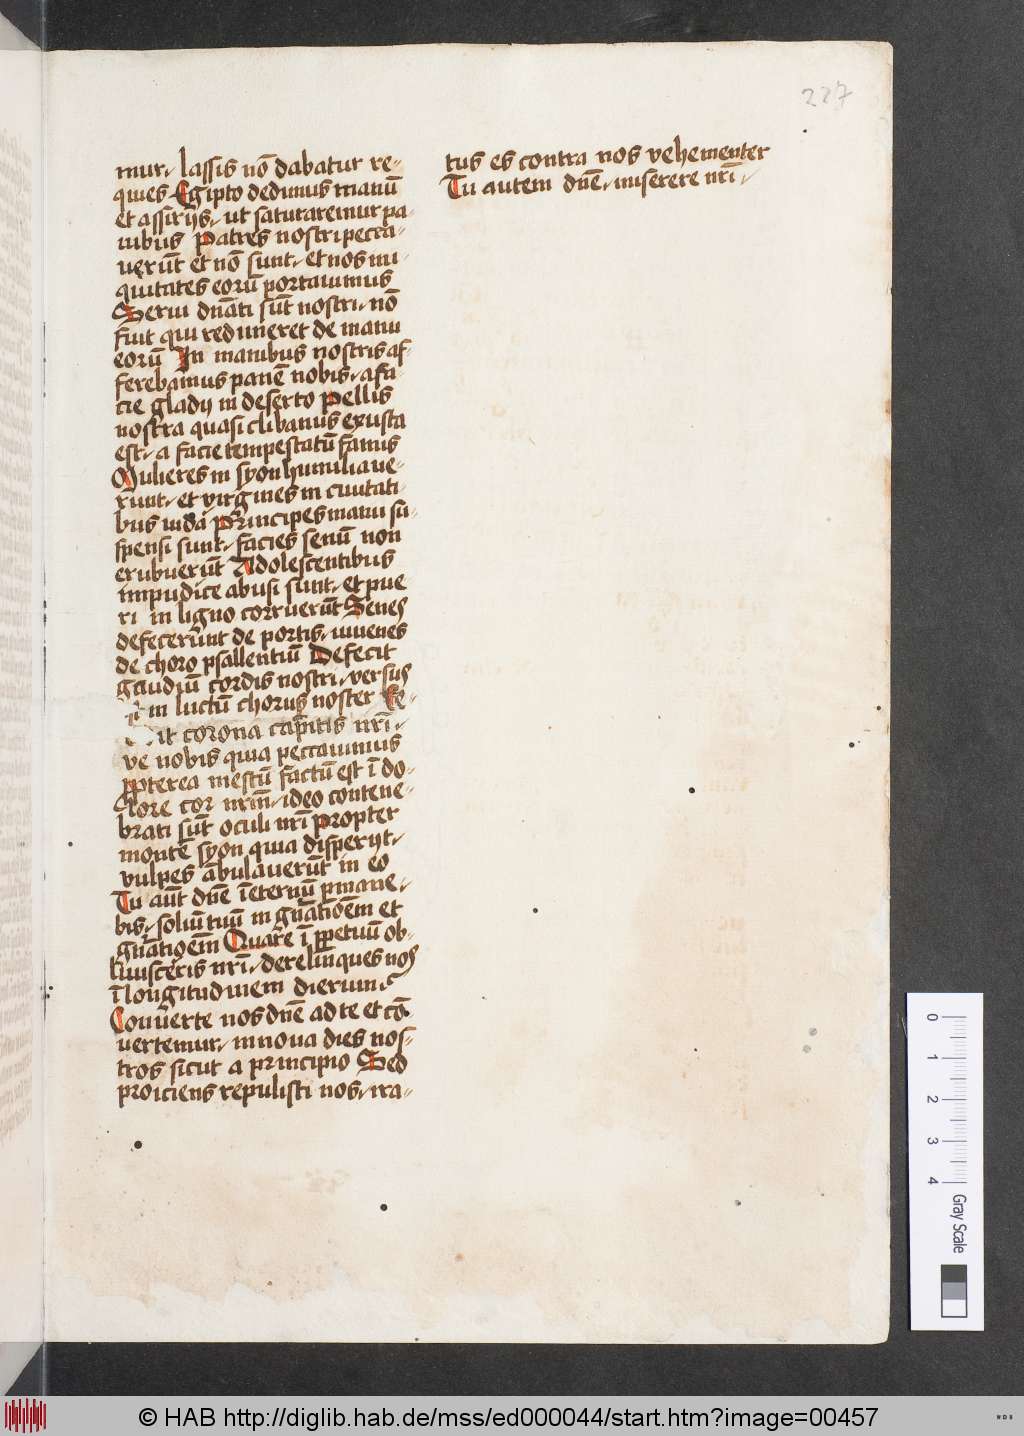 227
mur· lassis nō dabatur re-
quies Egipto dedimus manū
et assirijs· ut saturaremur pa-
nibus Patres nostri pecca-
uerūt et nō sunt· et nos ini-
quitates eorū portauimus
Serui dnāti sūt nostri· nō
fuit qui redimeret de manu
eorū In manibus nostris af-
ferebamus panē nobis· a fa-
cie gladij in deserto Pellis
nostra quasi clibanus exusta
est· a facie tempestatū famis
Mulieres in syon humiliaue-
runt· et virgines in ciuitati-
bus iuda Principes manu su-
spensi sunt· facies senū non
erubuerūt Adolescentibus
impudice abusi sunt· et pue
ri in ligno corruerūt Senes
defecerūnt de portis· iuuenes
de choro psallentiū Defecit
gaudiū cordis nostri· versus
in luctū chorus noster
corona capitis nrī·
ve nobis quia peccauimus
ppterea mestū factū est ī do-
lore cor nrm̄· ideo contene-
brati sūt oculi nrī Propter
montē syon quia disperijt·
vulpes ābulauerūt in eo
Tu aūt dnē īeternū pmane-
bis· soliū tuū in gn̄atiōem et
gn̄atiōem Quare ī ppetuū ob-
liuisceris nrī· derelinques nos
ī longitudinem dierum·
Conuerte nos dnē ad te et cō
vertemur· innoua dies nos-
tros sicut a principio Sed
proiciens repulisti nos· ira-
tus es contra nos vehementer
Tu autem dnē· miserere nrī·
0 1 2 3 4
Gray Scale
© HAB http://diglib.hab.de/mss/ed000044/start.htm?image=00457